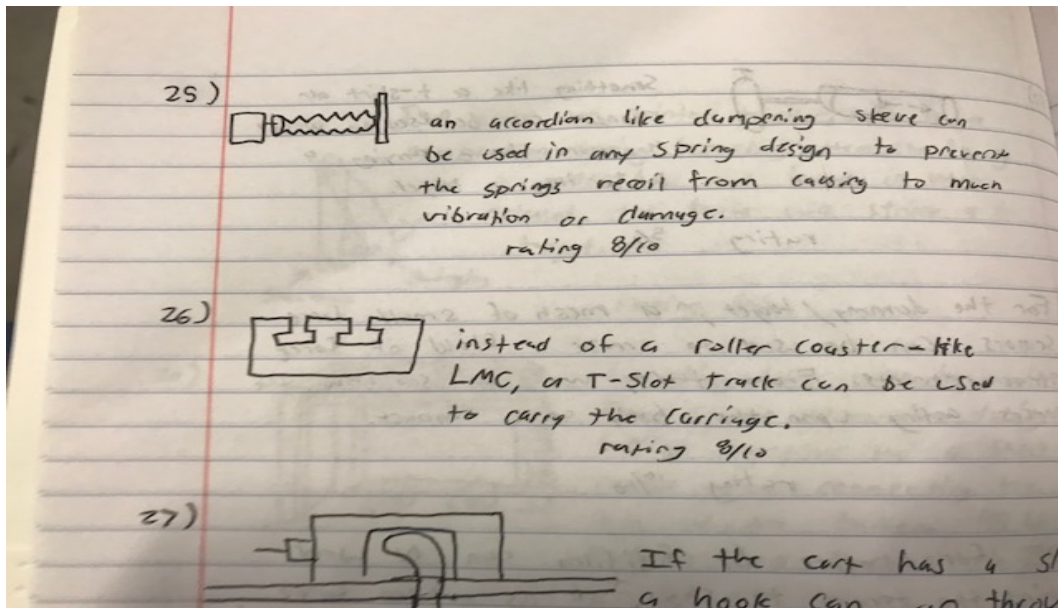 25)
an accordian like dampening sleeve can
be used in any spring design to prevent
the springs recoil from causing to much
vibration or damage.
rating 8/10
26)
instead of a roller coaster-like
LMC, a T-Slot track can be used
to carry the carriage.
rating 8/10
27)
If the cart has a
a hook can